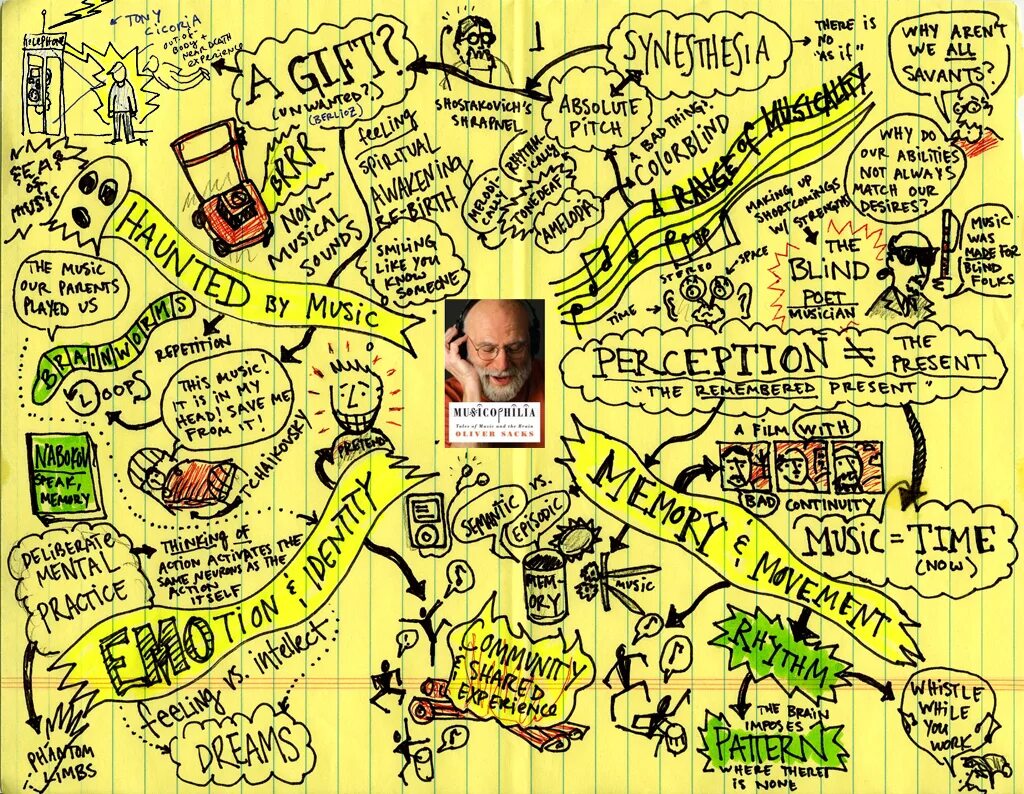 TELEPHONE
TONY
CICORIA
OUT OF
BODY +
NEAR DEATH
EXPERIENCE
A GIFT?
(UNWANTED?)
(BERLIOZ)
SHOSTAKOVICH'S
SHRAPNEL
SYNESTHESIA
THERE IS
NO
"AS IF"
ABSOLUTE
PITCH
WHY AREN'T
WE ALL
SAVANTS?
WHY DO
OUR ABILITIES
NOT ALWAYS
MATCH OUR
DESIRES?
A BAD THING?
COLORBLIND
A RANGE OF MUSICALITY
RHYTHM-
ICALLY
MELODI-
CALLY
TONEDEAF
AMELODIA
SEAS
OF
MUSIC
HAUNTED BY MUSIC
BRRR
NON-
MUSICAL
SOUNDS
feeling
SPIRITUAL
AWAKENING
RE-BIRTH
SMILING
LIKE YOU
KNOW
SOMEONE
MAKING UP
SHORTCOMINGS
W/ STRENGTHS
STEREO
SPACE
TIME
THE
BLIND
POET
MUSICIAN
MUSIC
WAS
MADE FOR
BLIND
FOLKS
THE MUSIC
OUR PARENTS
PLAYED US
BRAINWORMS
REPETITION
LOOPS
THIS MUSIC!
IT IS IN MY
HEAD! SAVE ME
FROM IT!
TCHAIKOVSKY
PRETEND
MUSICOPHILIA
Tales of Music and the Brain
OLIVER SACKS
PERCEPTION ≠ THE
PRESENT
"THE REMEMBERED PRESENT"
A FILM WITH
BAD CONTINUITY
MUSIC = TIME
(NOW)
NABOKOV
SPEAK,
MEMORY
DELIBERATE
MENTAL
PRACTICE
THINKING OF
ACTION ACTIVATES THE
SAME NEURONS AS THE
ACTION
ITSELF
PHANTOM
LIMBS
EMOTION & IDENTITY
feeling vs. intellect
DREAMS
SEMANTIC
VS.
EPISODIC
MEM-
ORY
MUSIC
MEMORY & MOVEMENT
COMMUNITY
&
SHARED
EXPERIENCE
RHYTHM
THE BRAIN
IMPOSES
PATTERN
WHERE THERE
IS NONE
WHISTLE
WHILE
YOU
WORK